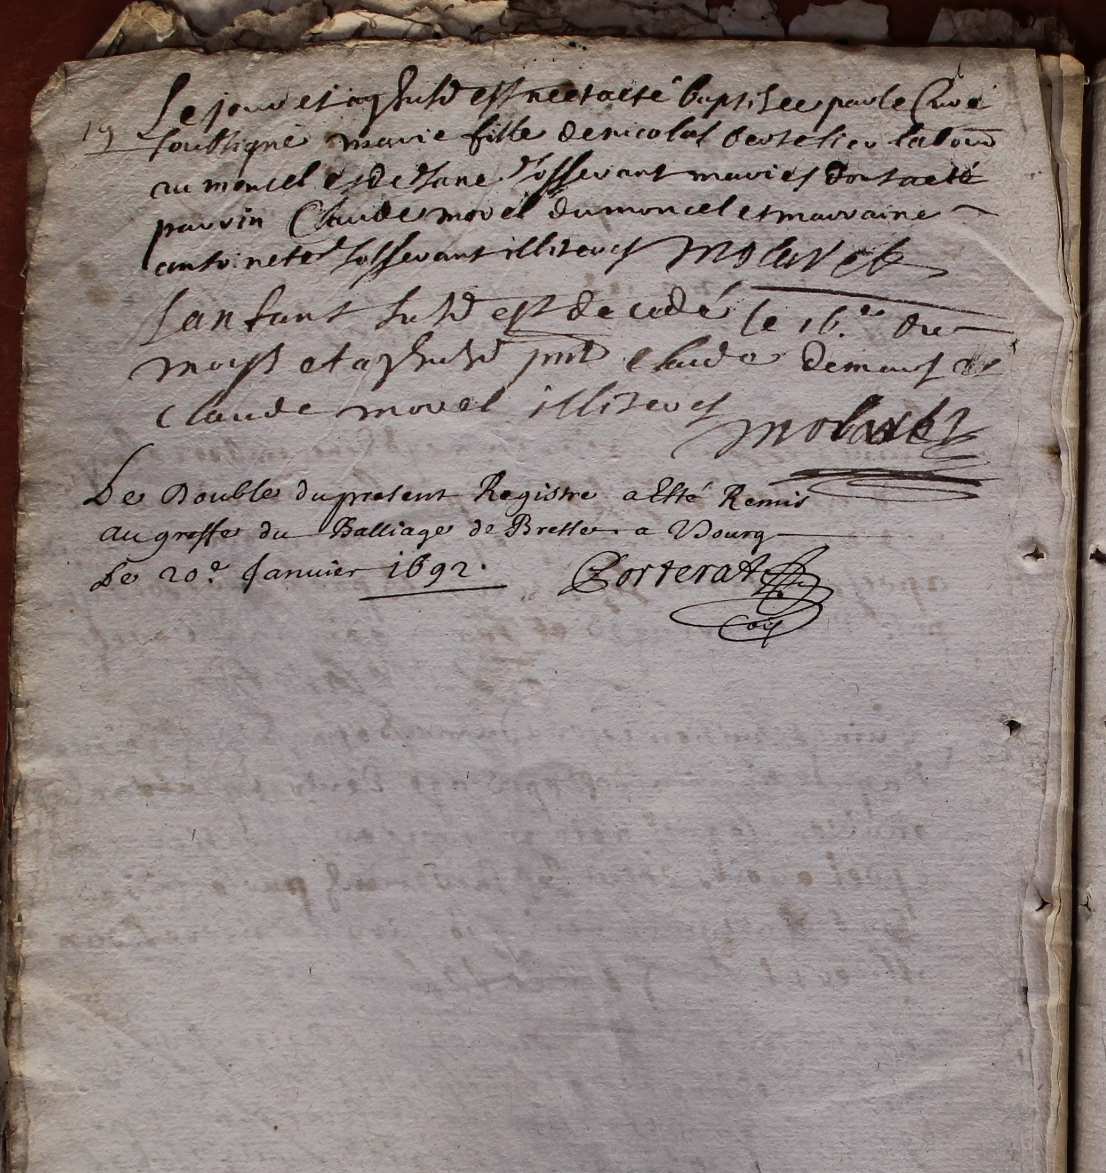 19 Le jour et an susd est nee et a eté baptisee par le Curé
soussigné marie fille de nicolas bertelier labour
au moncel et de Jane Josserant mariés dont a eté
parrin Claude morel du moncel et marraine
antoinete Josserant illiterés
Lanfant susd est decedé le 16.e du
mois et an susd pnt Claude et
Claude morel illiterés
Le Double du present Registre a Esté Remis
au greffe du Balliage de Bresse a Bourg
Le 20.e Janvier 1692.